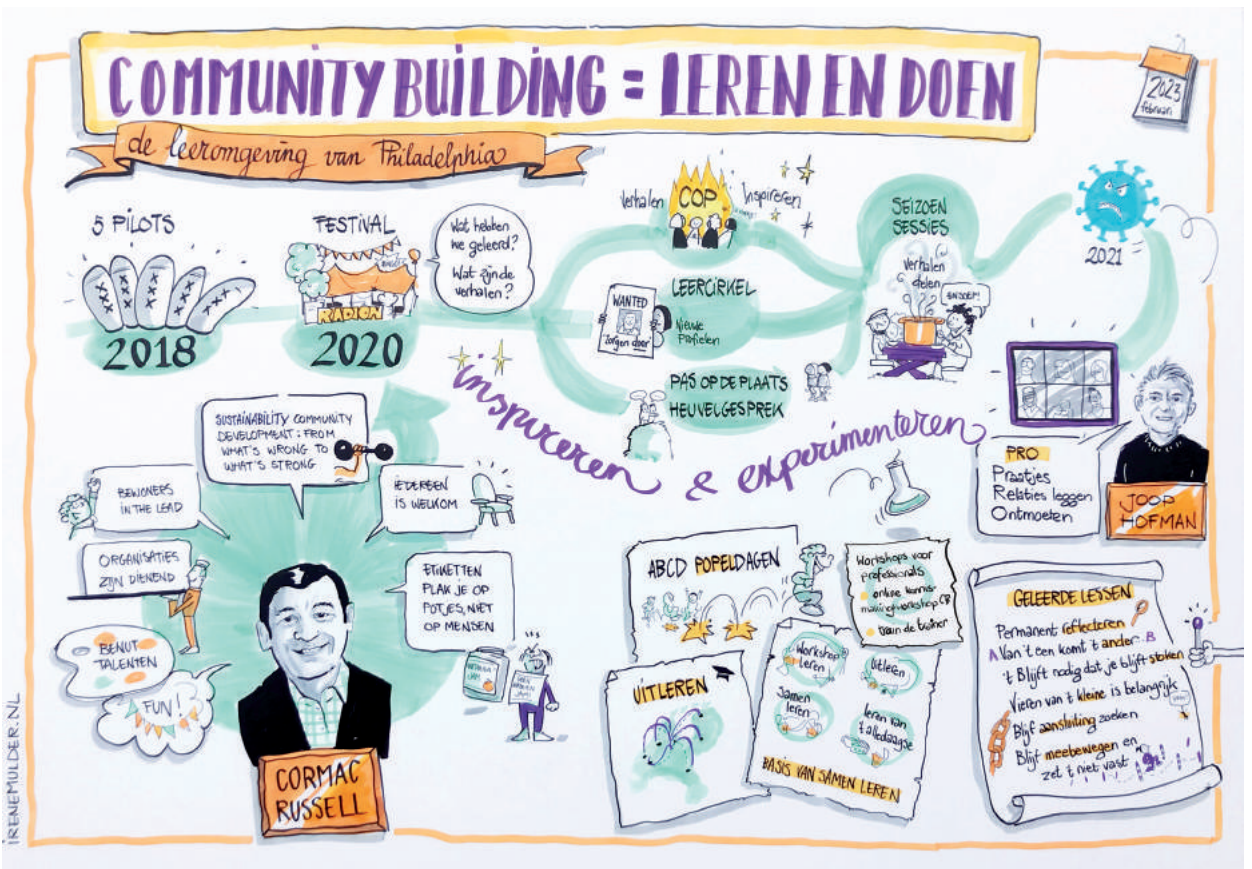 COMMUNITY BUILDING = LEREN EN DOEN
de leeromgeving van Philadelphia
2023
februari
5 PILOTS
2018
FESTIVAL
RADION
2020
Wat hebben
we geleerd?
Wat zijn de
verhalen?
Verhalen
COP
Inspireren
LEERCIRKEL
Nieuwe
Profielen
WANTED
"zorgen doer"
PAS OP DE PLAATS
HEUVELGESPREK
SEIZOEN
SESSIES
Verhalen
delen
EN SOEP!
2021
inspireren & experimenteren
PRO
Praatjes
Relaties leggen
Ontmoeten
JOOP
HOFMAN
SUSTAINABILITY COMMUNITY
DEVELOPMENT: FROM
WHAT'S WRONG TO
WHAT'S STRONG
BEWONERS
IN THE LEAD
IEDEREEN
IS WELKOM
ORGANISATIES
ZIJN DIENEND
ETIKETTEN
PLAK JE OP
POTJES, NIET
OP MENSEN
BENUT
TALENTEN
FUN!
CORMAC
RUSSELL
ABCD POPELDAGEN
Workshops voor
professionals
online kennis-
makingworkshop CB
train de trainer
UITLEREN
Workshop
leren
Uitleen
Samen
leren
leren van
't alledaagse
BASIS VAN SAMEN LEREN
GELEERDE LESSEN
Permanent reflecteren
A Van 't een komt 't ander B
't Blijft nodig dat je blijft stoken
Vieren van 't kleine is belangrijk
Blijf aansluiting zoeken
Blijf meebewegen en
zet 't niet vast
IRENEMULDER.NL